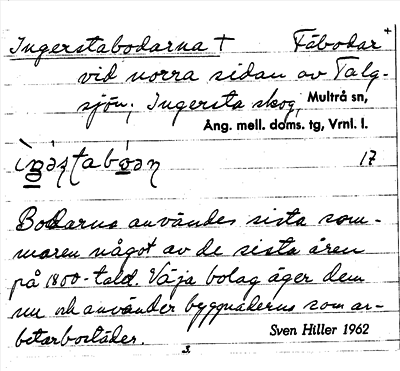 Ingerstabodarna † Fäbodar +
vid norra sidan av Talg-
sjön, Ingersta skog, Multrå sn,
Ång. mell. doms. tg, Vrnl. l.
17
Bodarna användes sista som-
maren något av de sista åren
på 1800-tald. Väja bolag äger dem
nu och använder byggnaderna som ar-
betarbostäder. Sven Hiller 1962
S.